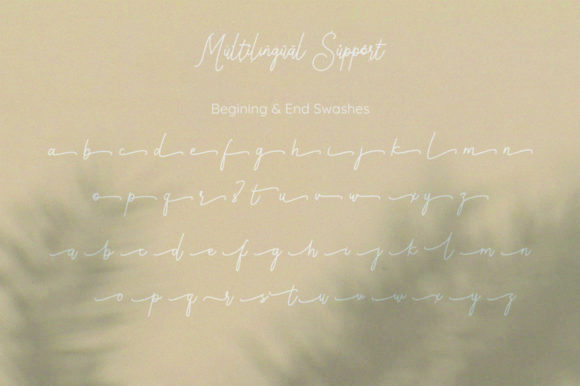 Mültilingüäl Süppört
Begining & End Swashes
a b c d e f g h i j k l m n
o p q r s t u v w x y z
a b c d e f g h i j k l m n
o p q r s t u v w x y z